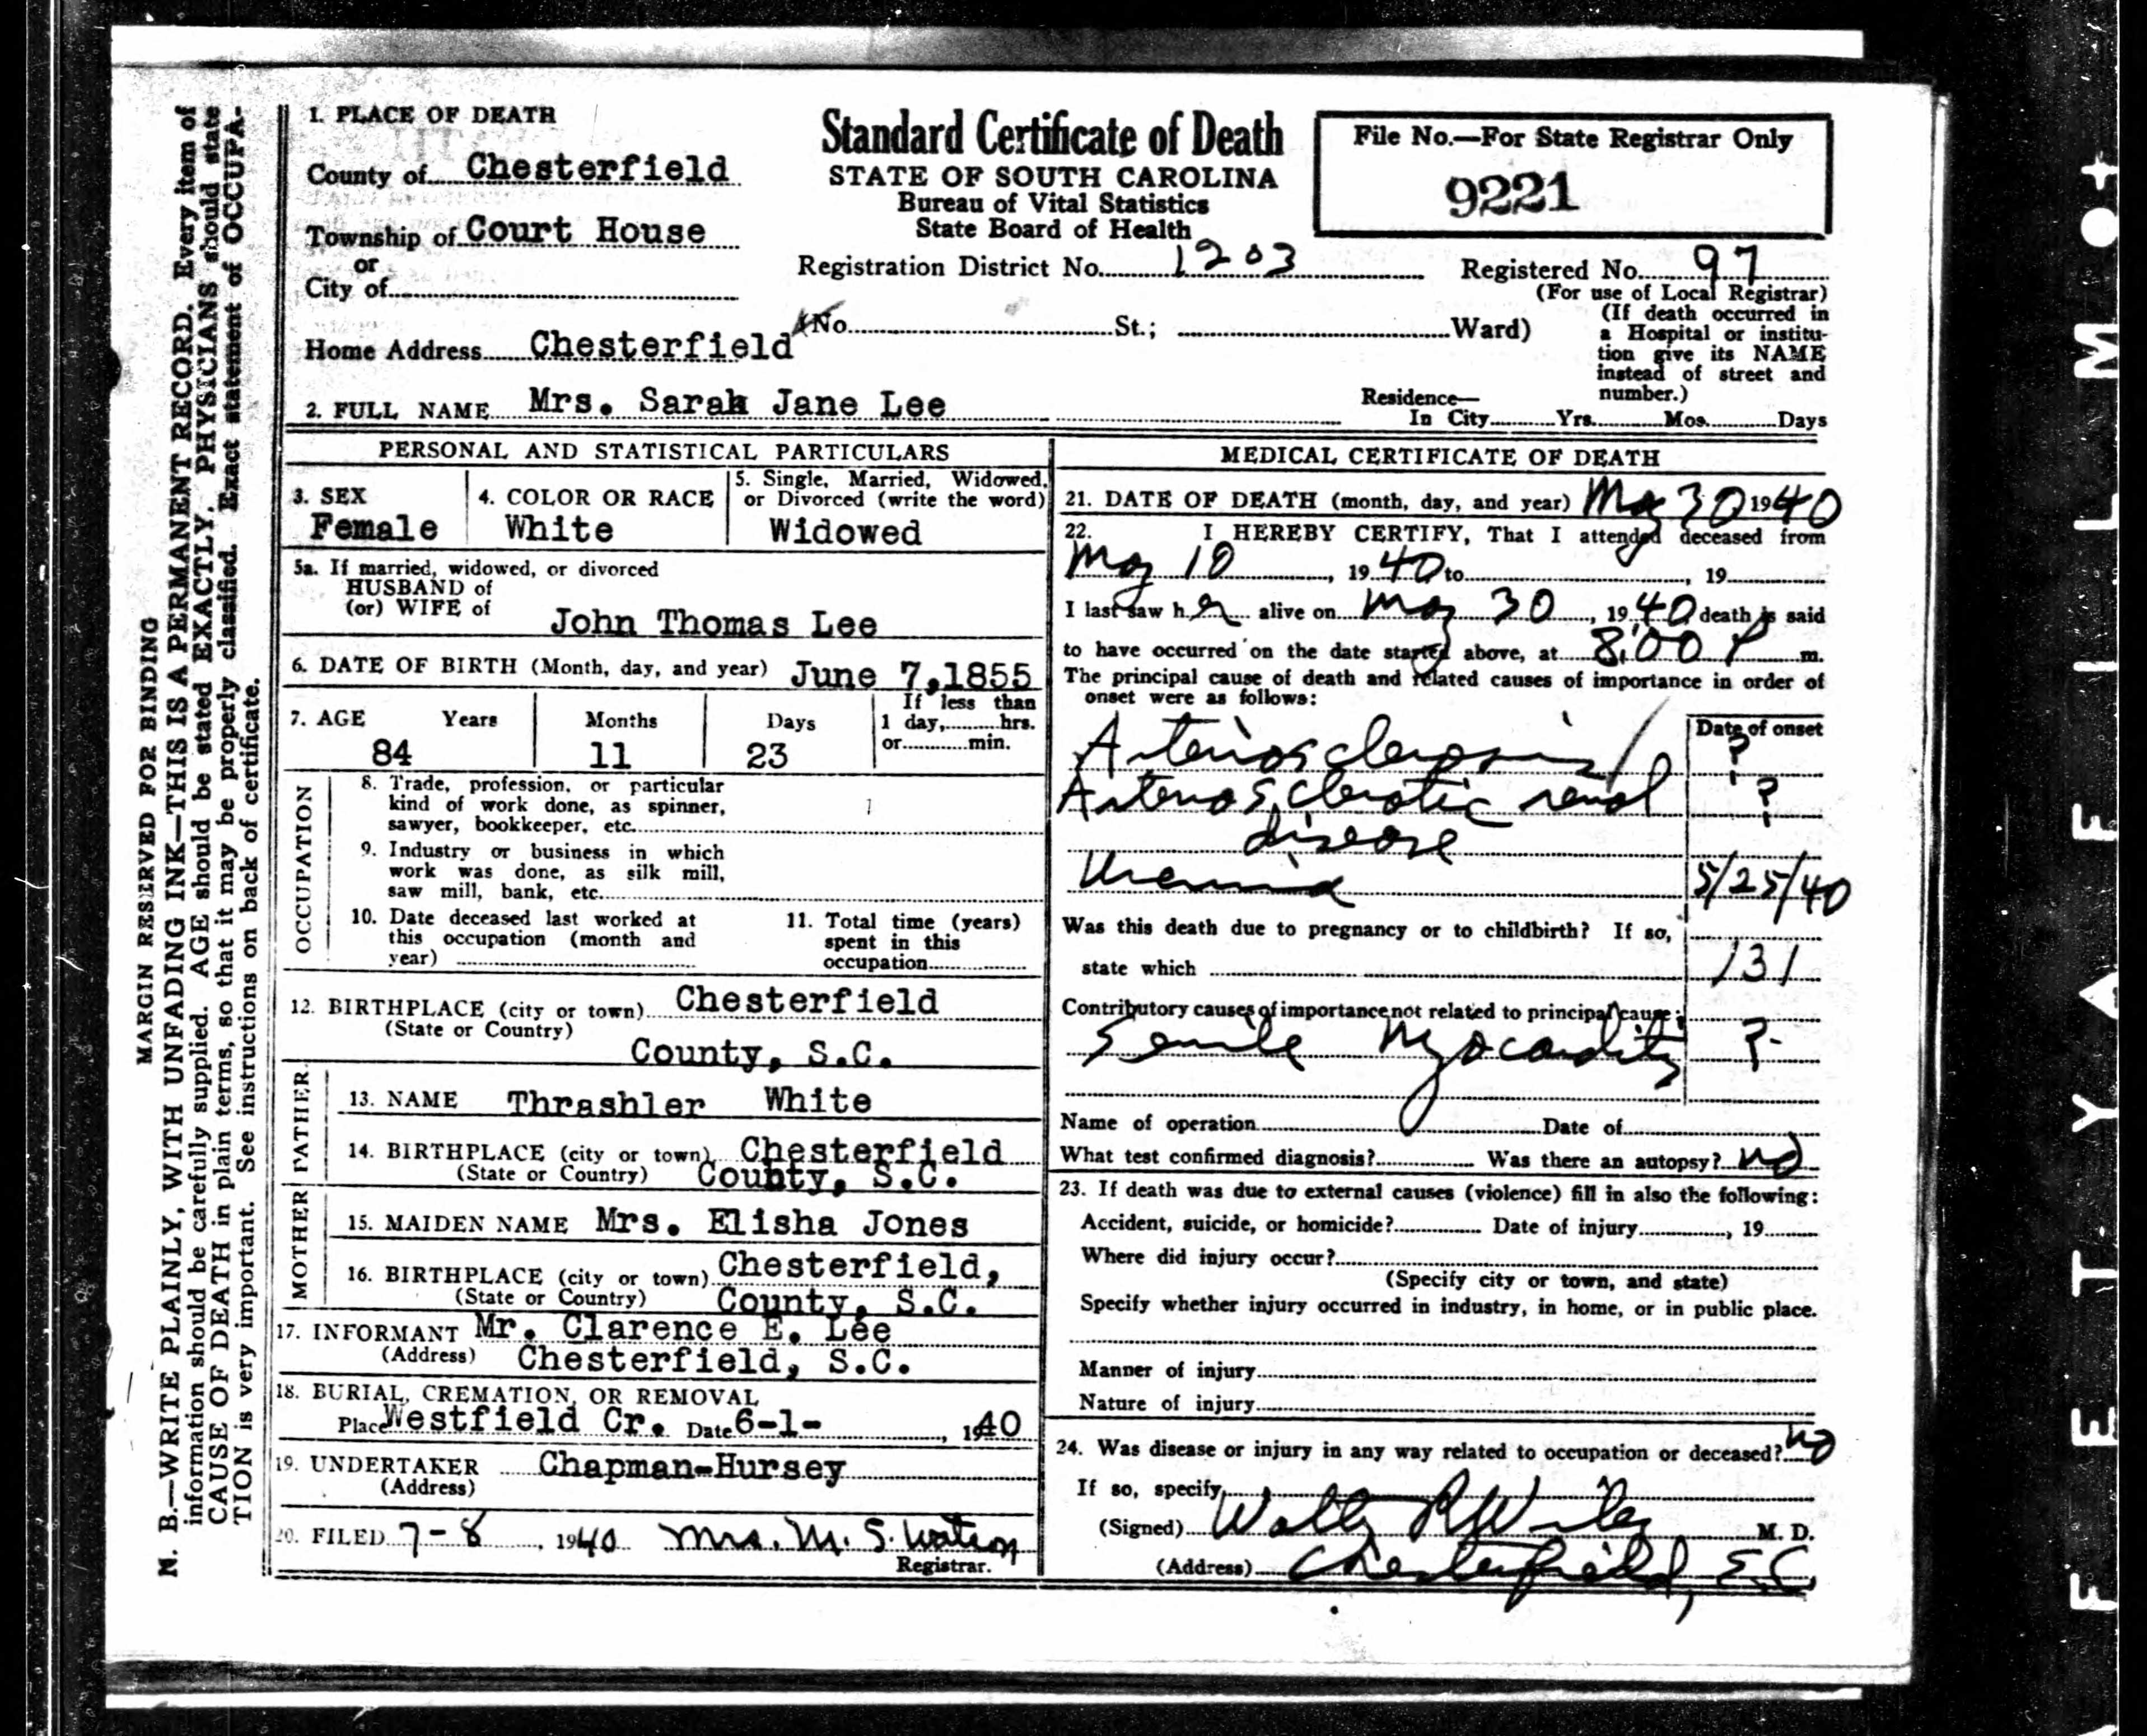 MARGIN RESERVED FOR BINDING
N. B.—WRITE PLAINLY, WITH UNFADING INK—THIS IS A PERMANENT RECORD. Every item of
information should be carefully supplied. AGE should be stated EXACTLY. PHYSICIANS should state
CAUSE OF DEATH in plain terms, so that it may be properly classified. Exact statement of OCCUPA-
TION is very important. See instructions on back of certificate.
Standard Certificate of Death
STATE OF SOUTH CAROLINA
Bureau of Vital Statistics
State Board of Health
File No.—For State Registrar Only
9221
1. PLACE OF DEATH
County of Chesterfield
Township of Court House
or
City of
Registration District No. 1203
Registered No. 97
(For use of Local Registrar)
(No. St.; Ward)
(If death occurred in
a Hospital or institu-
tion give its NAME
instead of street and
number.)
Home Address Chesterfield
2. FULL NAME Mrs. Sarah Jane Lee
Residence—
In City Yrs. Mos. Days
PERSONAL AND STATISTICAL PARTICULARS
3. SEX
Female
4. COLOR OR RACE
White
5. Single, Married, Widowed,
or Divorced (write the word)
Widowed
5a. If married, widowed, or divorced
HUSBAND of
(or) WIFE of
John Thomas Lee
6. DATE OF BIRTH (Month, day, and year) June 7,1855
7. AGE Years Months Days
84 11 23
If less than
1 day, hrs.
or min.
OCCUPATION
8. Trade, profession, or particular
kind of work done, as spinner,
sawyer, bookkeeper, etc.
9. Industry or business in which
work was done, as silk mill,
saw mill, bank, etc.
10. Date deceased last worked at
this occupation (month and
year)
11. Total time (years)
spent in this
occupation
12. BIRTHPLACE (city or town) Chesterfield
(State or Country)
County, S.C.
FATHER
13. NAME Thrashler White
14. BIRTHPLACE (city or town) Chesterfield
(State or Country) County, S.C.
MOTHER
15. MAIDEN NAME Mrs. Elisha Jones
16. BIRTHPLACE (city or town) Chesterfield,
(State or Country) County, S.C.
17. INFORMANT Mr. Clarence E. Lee
(Address) Chesterfield, S.C.
18. BURIAL, CREMATION, OR REMOVAL
Place Westfield Cr. Date 6-1- , 1940
19. UNDERTAKER Chapman-Hursey
(Address)
20. FILED 7-8, 1940 Mrs. M. S. Watson
Registrar.
MEDICAL CERTIFICATE OF DEATH
21. DATE OF DEATH (month, day, and year) May 30 1940
22. I HEREBY CERTIFY, That I attended deceased from
May 10, 1940 to , 19
I last saw her alive on May 30, 1940 death is said
to have occurred on the date started above, at 8:00 P m.
The principal cause of death and related causes of importance in order of
onset were as follows:
Date of onset
Arteriosclerosis ?
Arteriosclerotic renal ?
disease
Uremia 5/25/40
Was this death due to pregnancy or to childbirth? If so,
state which
131
Contributory causes of importance not related to principal cause:
Senile Myocarditis ?
Name of operation Date of
What test confirmed diagnosis? Was there an autopsy? no
23. If death was due to external causes (violence) fill in also the following:
Accident, suicide, or homicide? Date of injury , 19
Where did injury occur?
(Specify city or town, and state)
Specify whether injury occurred in industry, in home, or in public place.
Manner of injury
Nature of injury
24. Was disease or injury in any way related to occupation or deceased? no
If so, specify
(Signed) M. D.
(Address) Chesterfield, S.C.
SAFETY FILM